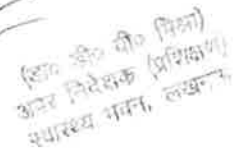 (डा० डी० पी० मिश्रा)
अपर निदेशक (प्रशिक्षण)
स्वास्थ्य भवन, लखनऊ